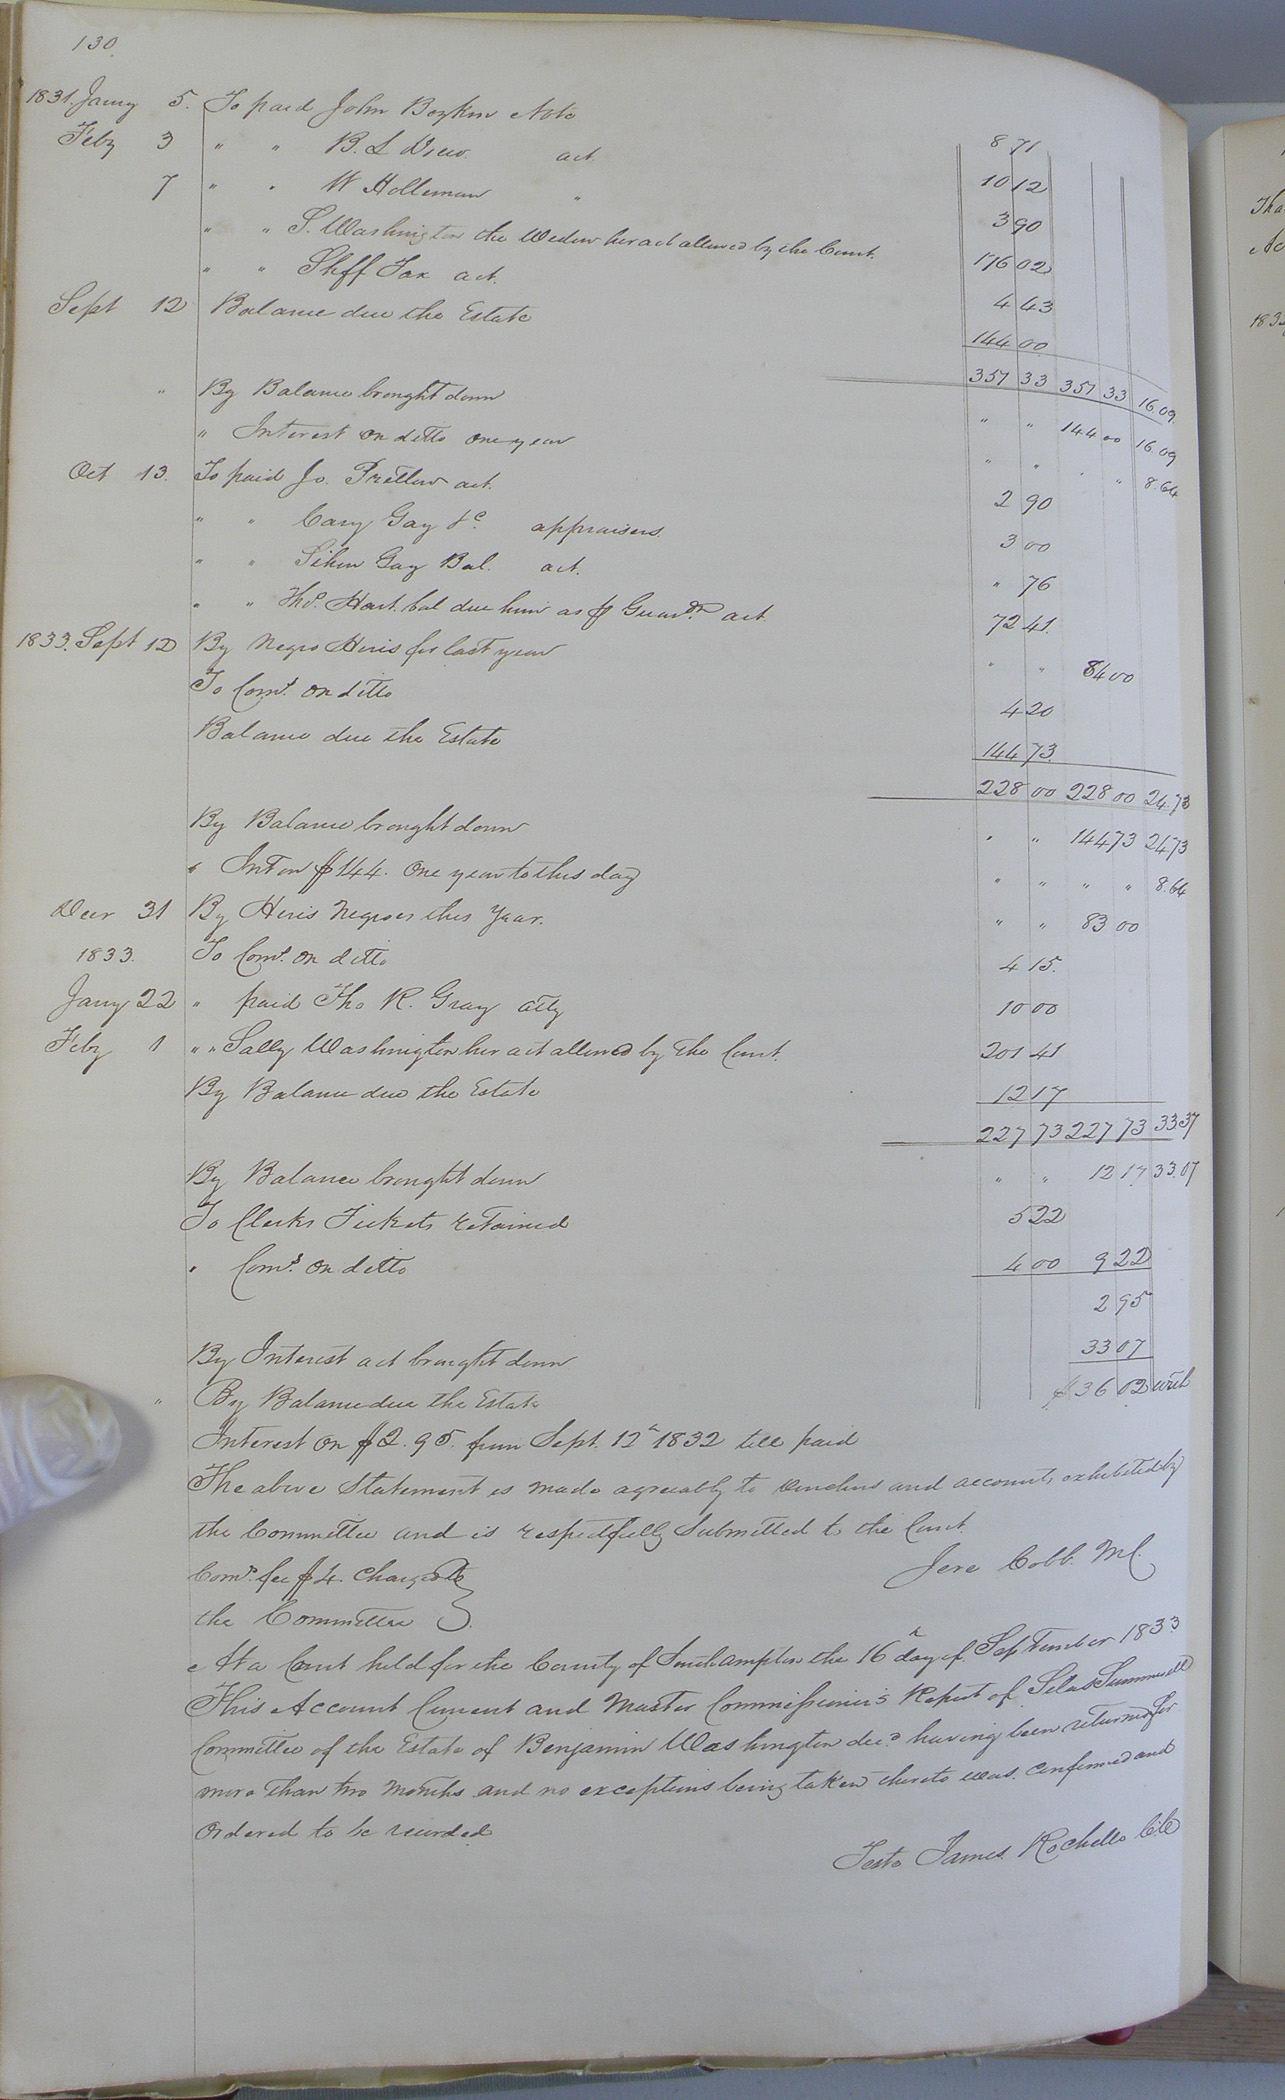 130.
1831. Jany 5. To paid John Boykin Note 8 71
Feby 3 " " B. L Drew. act. 10 12
7 " " W Holleman " 3 90
" " S. Washington the Widow her act allowed by the Court. 176 02
" " Shff Tax act. 4 43
Sept 12 Balance due the Estate 144 00
357 33 357 33 16 09
" By Balance brought down " " 144 00 16.09
" Interest on ditto one year " " " " 8.64
Oct 13. To paid Jo. Pretlow act. 2 90
" " Cary Gay &c. appraisers. 3 00
" " Gay Bal. act. " 76
" " Thos. Hart. bal due him as Guardn. act. 72 41.
1833. Sept 12 By Negro Hires for last year " " 84 00
To Coms. on ditto 4 20
Balance due the Estate 144 73.
228 00 228 00 24.73
By Balance brought down " " 144 73 24 73
" Int on $144. One year to this day " " " " 8.64
Decr 31 By Hires Negroes this Year. " " 83 00
1833. To Coms. on ditto 4 15.
Jany 22 " paid Tho R. Gray atty 10 00
Feby 1 " " Sally Washington her act allowed by the Court. 201 41
By Balance due the Estate 12 17
227 73 227 73 33 37
By Balance brought down " " 12 17 33.07
To Clerks Tickets retained 5 22
" Coms. on ditto 4 00 9 22
2 95
By Interest act brought down 33 07
" By Balance due the Estate $ 36 02 with
Interest on $2.95. from Sept. 12h 1832 till paid
The above Statement is made agreeably to vouchers and accounts exhibited by
the Committee and is respectfully Submitted to the Court.
Jere Cobb. M C.
Comr. fee $4. charged to
the Committee
At a Court held for the County of Southampton the 16h day of September 1833
This Account Current and Master Commissioner's Report of Silas Summerell
Committee of the Estate of Benjamin Washington decd. having been returned for
more than two months and no exceptions being taken thereto was confirmed and
ordered to be recorded
Teste James Rochelle C.C